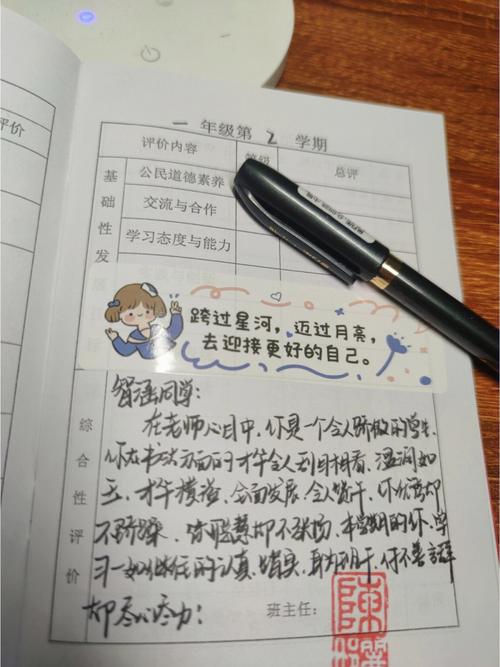 评价
一 年级第 2 学期
评价内容 等级 总评
基础性发展
公民道德素养
交流与合作
学习态度与能力
跨过星河，迈过月亮，
去迎接更好的自己。
综合性评价
智涵同学：
在老师心目中，你是一个令人骄傲的学生，
你在书法方面的才华令人刮目相看，温润如
玉，才华横溢，全面发展，令人赞叹，你优秀却
不骄躁，你聪慧却不张扬，本学期的你，学
习一如既往的认真、踏实，身为班干，你不善言辞
却尽心尽力！
班主任：